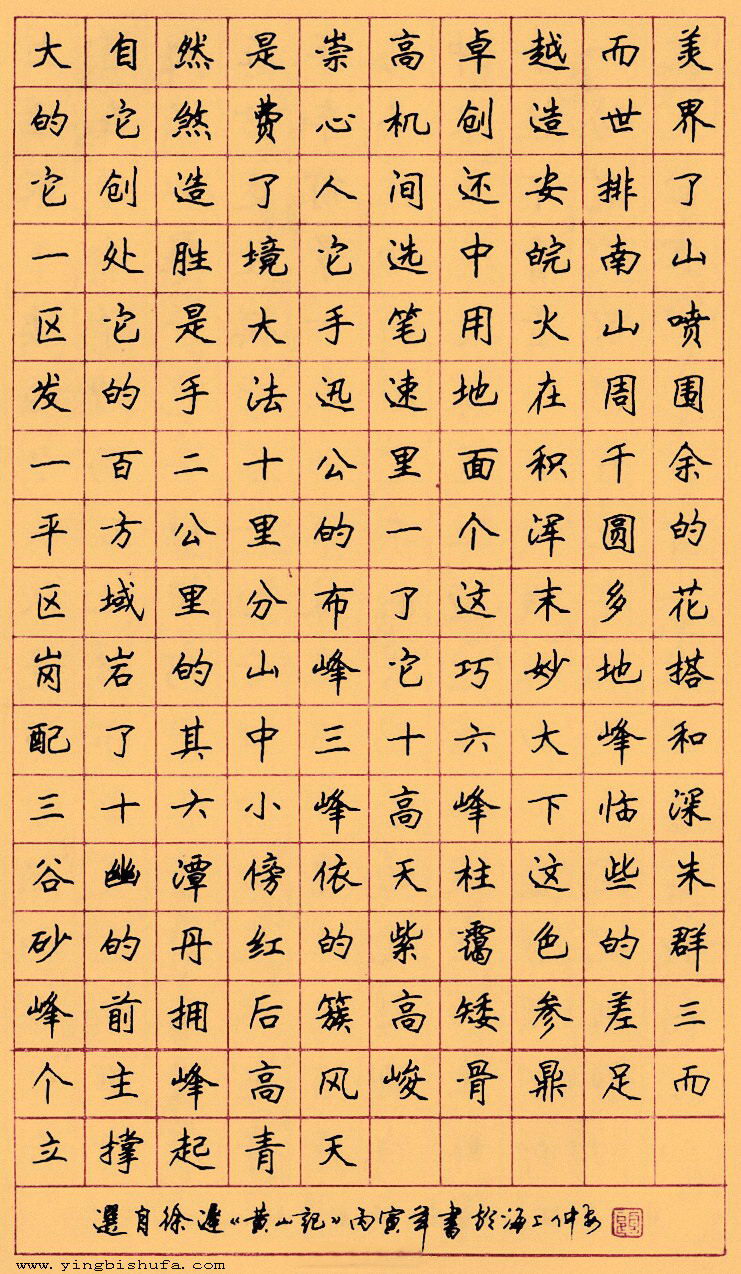 大自然是崇高卓越而美
的它煞费心机创造世界
它创造了人间还安排了
一处胜境它选中皖南山
区它是大手笔用火山喷
发的手法迅速地在周围
一百二十公里面积千余
平方公里的一个浑圆的
区域里分布了这末多花
岗岩的山峰它巧妙地搭
配了其中三十六大峰和
三十六小峰高峰下临深
谷幽潭傍依天柱这些朱
砂的丹红的紫霭色的群
峰前拥后簇高矮参差三
个主峰高风峻骨鼎足而
立撑起青天
選自徐遲《黄山記》丙寅年書於海上仲安
www.yingbishufa.com